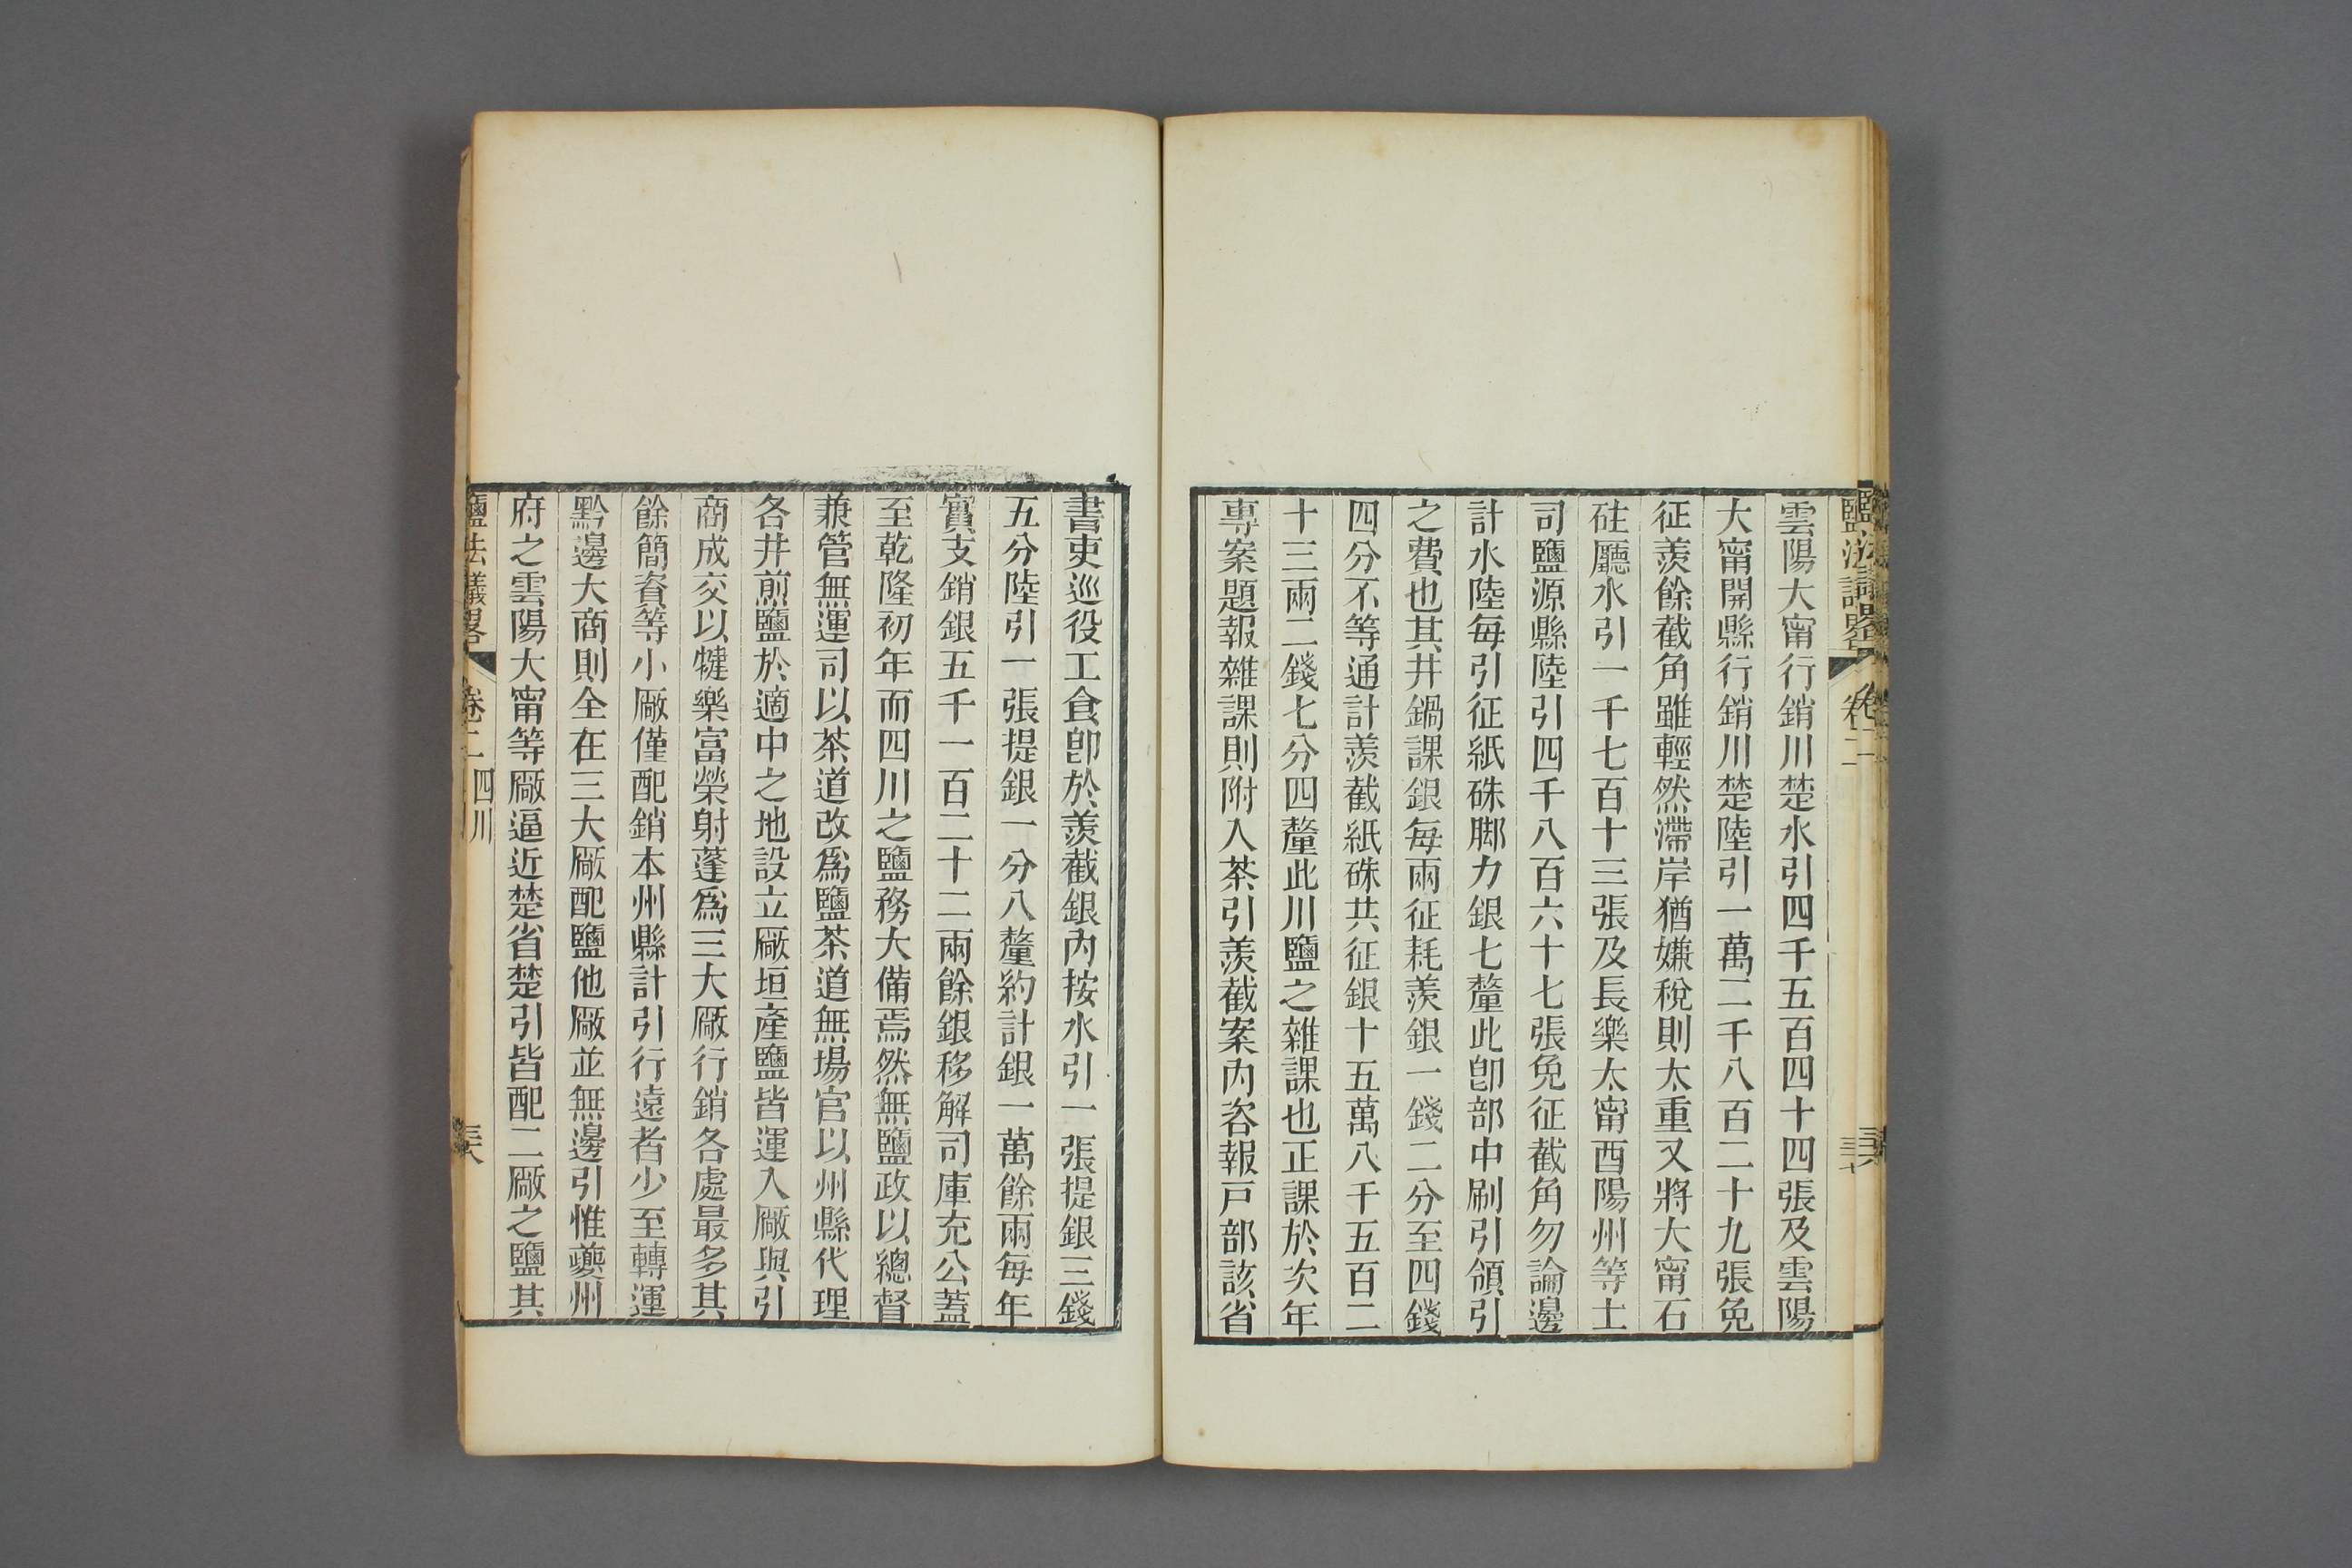 雲陽大甯行銷川楚水引四千五百四十四張及雲陽
大甯開縣行銷川楚陸引一萬二千八百二十九張免
征羨餘截角雖輕然滯岸猶嫌稅則太重又將大甯石
砫廳水引一千七百十三張及長樂太甯酉陽州等土
司鹽源縣陸引四千八百六十七張免征截角勿論邊
計水陸每引征紙硃脚力銀七釐此卽部中刷引領引
之費也其井鍋課銀每兩征耗羨銀一錢二分至四錢
四分不等通計羨截紙硃共征銀十五萬八千五百二
十三兩二錢七分四釐此川鹽之雜課也正課於次年
專案題報雜課則附入茶引羨截案內咨報戸部該省
書吏巡役工食卽於羨截銀內按水引一張提銀三錢
五分陸引一張提銀一分八釐約計銀一萬餘兩每年
實支銷銀五千一百二十二兩餘銀移解司庫充公蓋
至乾隆初年而四川之鹽務大備焉然無鹽政以總督
兼管無運司以茶道改爲鹽茶道無場官以州縣代理
各井煎鹽於適中之地設立厰垣產鹽皆運入厰與引
商成交以犍樂富榮射蓬爲三大厰行銷各處最多其
餘簡資等小厰僅配銷本州縣計引行遠者少至轉運
黔邊大商則全在三大厰配鹽他厰並無邊引惟夔州
府之雲陽大甯等厰逼近楚省楚引皆配二厰之鹽其
鹽法議畧 卷二 四川